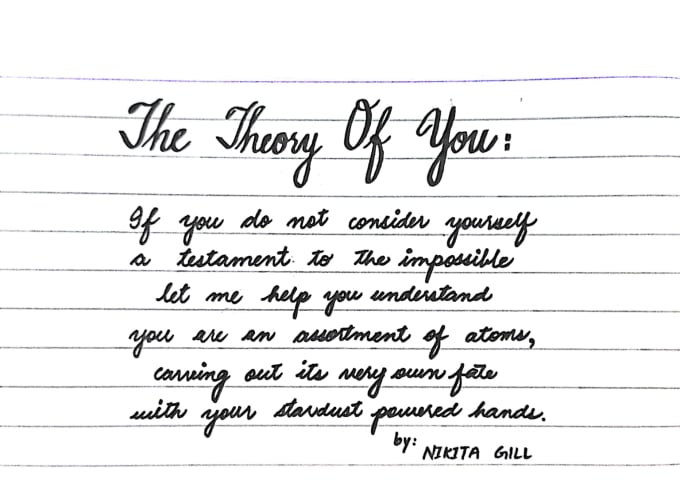 The Theory Of You:
If you do not consider yourself
a testament to the impossible
let me help you understand
you are an assortment of atoms,
carving out its very own fate
with your stardust powered hands.
by: NIKITA GILL